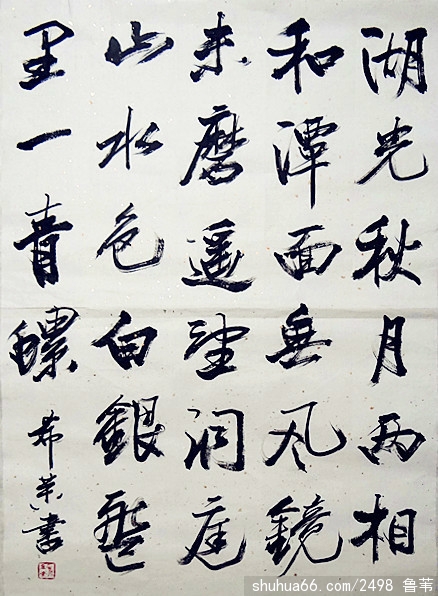 湖光秋月两相
和潭面無风鏡
未磨遥望洞庭
山水色白銀盤
里一青螺
希 書
shuhua66.com/2498 鲁苇